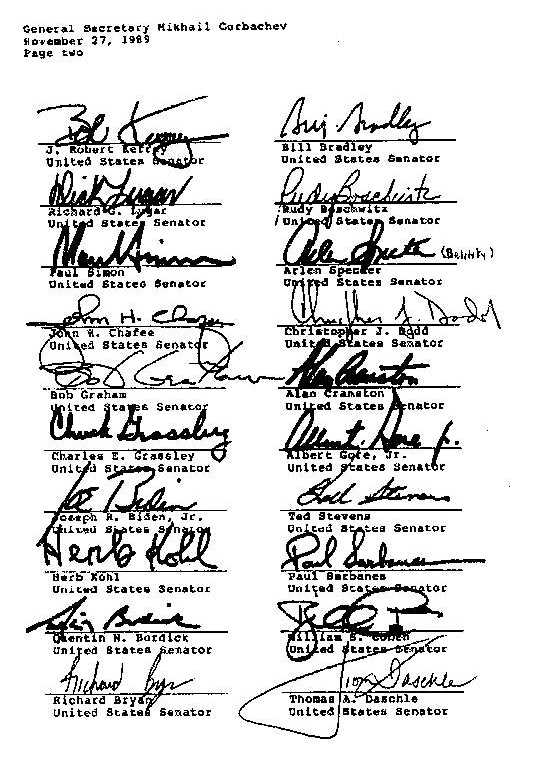 General Secretary Mikhail Gorbachev
November 27, 1989
Page two
Bob Kerrey
J. Robert Kerrey
United States Senator
Bill Bradley
Bill Bradley
United States Senator
Dick Lugar
Richard G. Lugar
United States Senator
Rudy Boschwitz
Rudy Boschwitz
United States Senator
Paul Simon
Paul Simon
United States Senator
Arlen Specter
Arlen Specter
United States Senator
John H. Chafee
John H. Chafee
United States Senator
Christopher J. Dodd
Christopher J. Dodd
United States Senator
Bob Graham
Bob Graham
United States Senator
Alan Cranston
Alan Cranston
United States Senator
Chuck Grassley
Charles E. Grassley
United States Senator
Albert Gore Jr.
Albert Gore, Jr.
United States Senator
Joe Biden
Joseph R. Biden, Jr.
United States Senator
Ted Stevens
Ted Stevens
United States Senator
Herb Kohl
Herb Kohl
United States Senator
Paul Sarbanes
Paul Sarbanes
United States Senator
Burdick
Quentin N. Burdick
United States Senator
Bill
William S. Cohen
United States Senator
Richard Bryan
Richard Bryan
United States Senator
Tom Daschle
Thomas A. Daschle
United States Senator